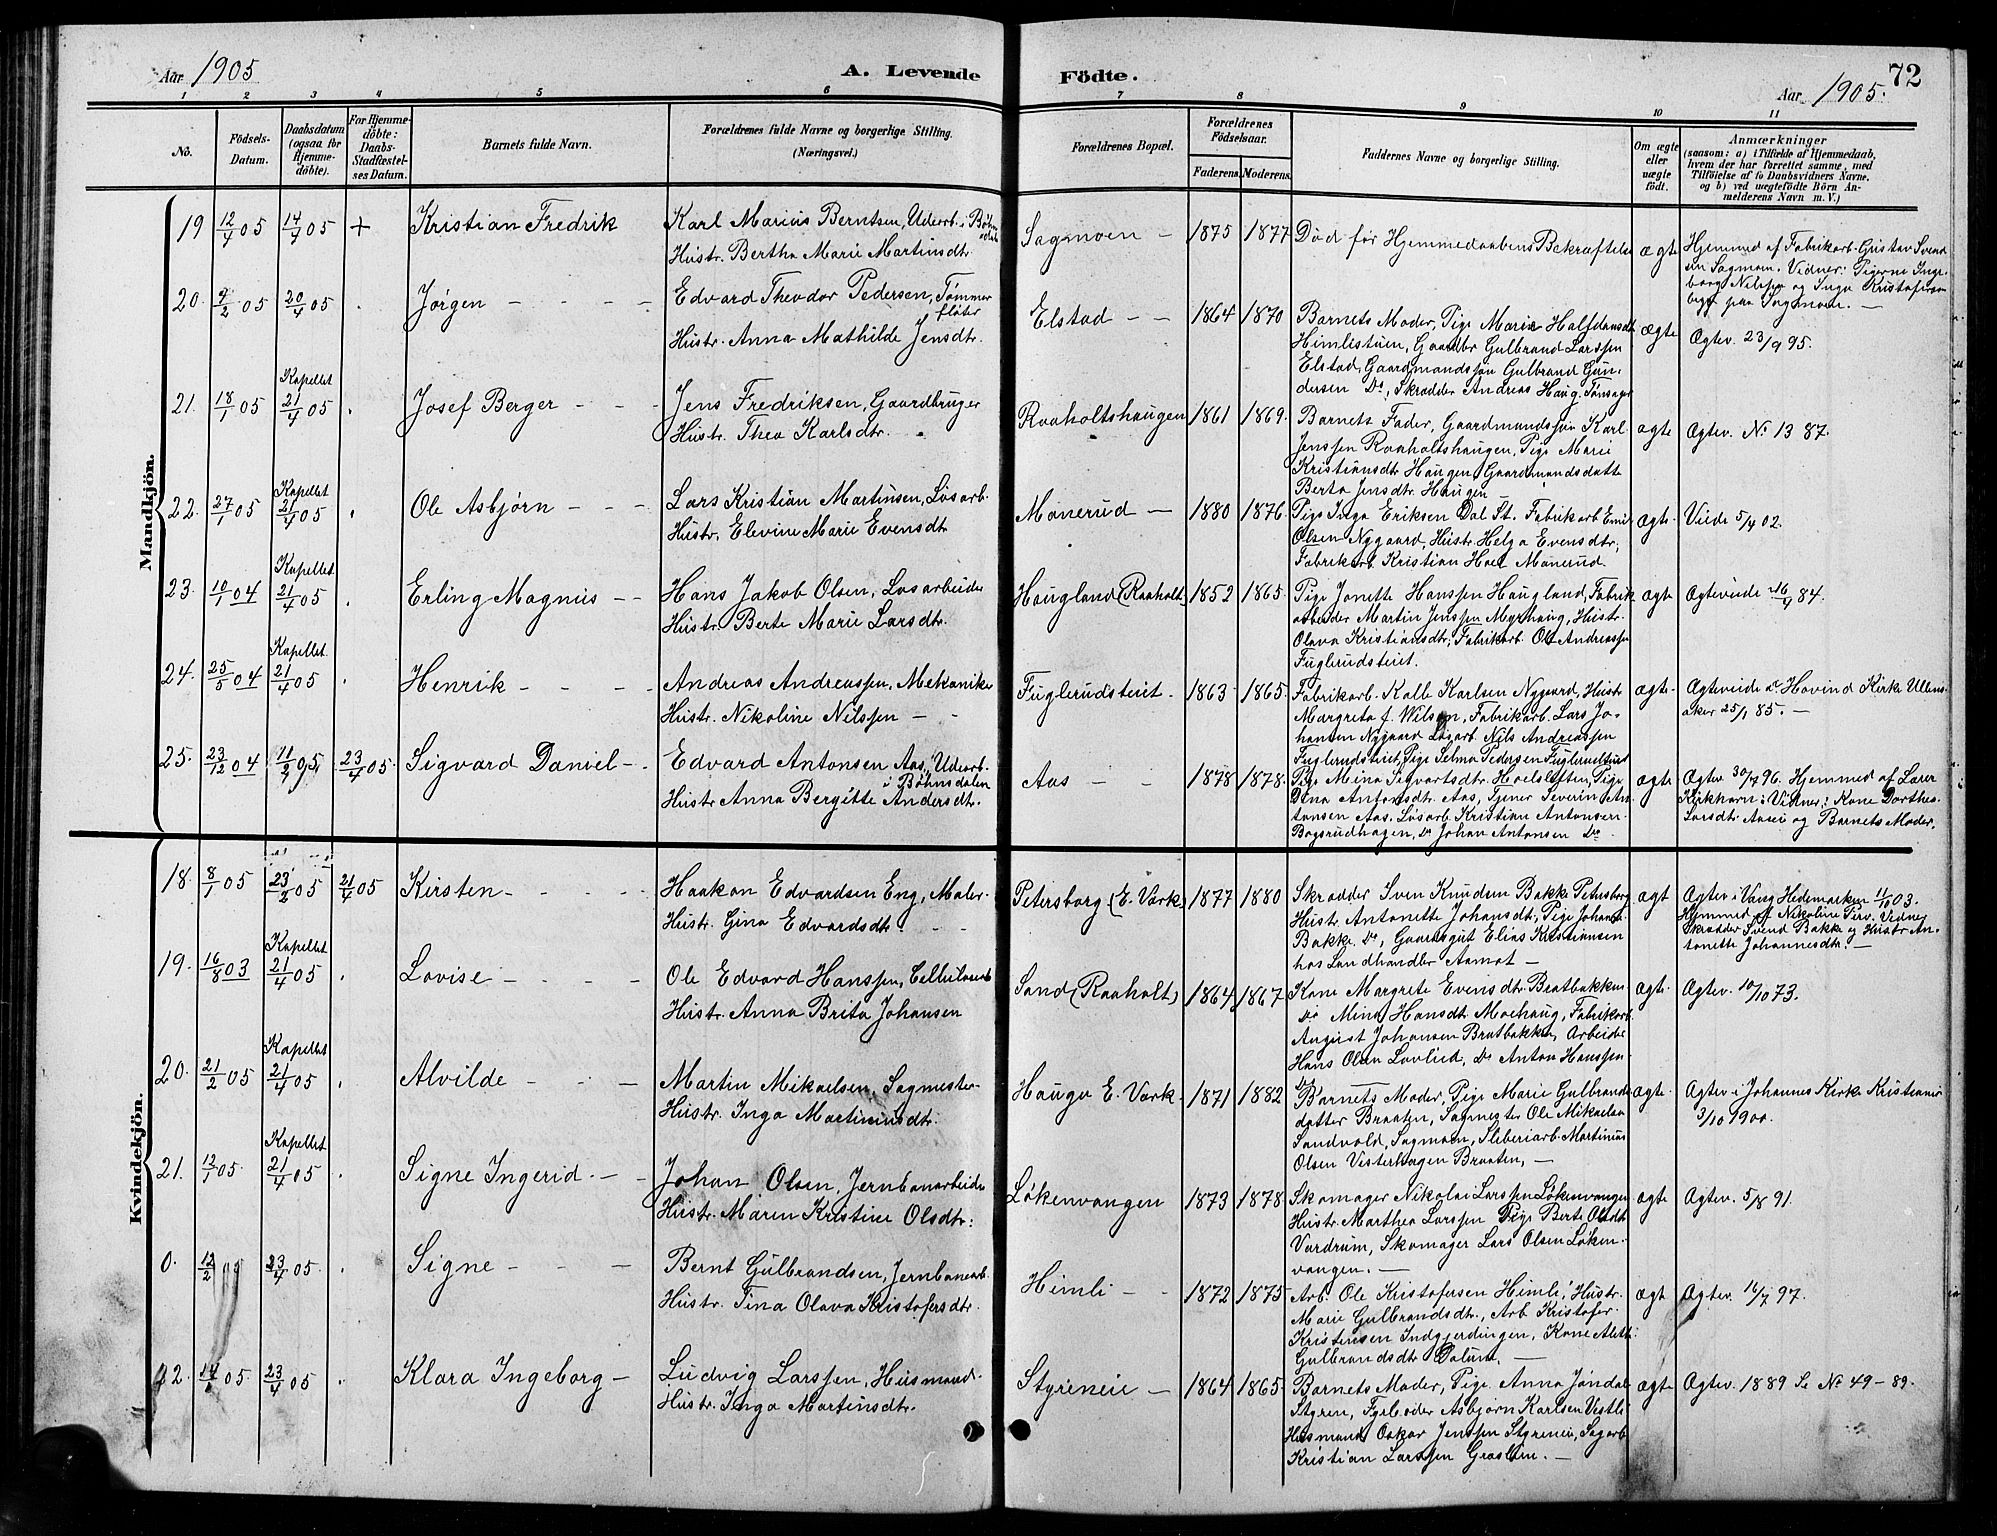 Aar 1905
A. Levende
Födte.
Aar 1905.
72
1 2 3 4 5 6 7 8 9 10 11
No.
Födsels-
Datum.
Daabsdatum
(ogsaa for
Hjemme-
döbte).
For Hjemme-
döbte:
Daabs-
Stadfæstel-
ses Datum.
Barnets fulde Navn.
Forældrenes fulde Navne og borgerlige Stilling.
(Næringsvei.)
Forældrenes Bopæl.
Forældrenes
Födselsaar.
Faderens. Moderens.
Faddernes Navne og borgerlige Stilling.
Om ægte
eller
uægte
födt.
Anmærkninger
(saasom: a) i Tilfælde af Hjemmedaab,
hvem der har forrettet samme, med
Tilföielse af to Daabsvidners Navne,
og b) ved uægtefödte Börn An-
melderens Navn m. V.)
Mandkjön.
19 12/4 05 14/4 05 + Kristian Fredrik
Karl Marius Berntsen, Udearb. i Bøhns
dalen
Hustr. Bertha Marie Martinsdtr.
Sagmoen - 1875 1877
Død før Hjemmedaabens Bekræftelse
ægte
Hjemmed. af Fabrikarb. Gustav Svend
sen Sagmoen. Vidner: Pigerne Inge-
borg Nilsen og Inga Kristofersen
begge paa Sagmoen. -
20. 9/2 05 20/4 05 Jørgen - - - -
Edvard Theodor Pedersen, Tømmer
fløter
Hustr. Anna Mathilde Jensdtr.
Elstad - - 1864 1870
Barnets Moder, Pige Marie Halfdansdtr
Himlistuen, Gaardbr Gulbrand Larssen
Elstad, Gaardmandssøn Gulbrand Gun-
dersen Do, Skrædder Andreas Haug, Tønsager
ægte
Ægtev. 23/9 95.
21. 18/1 05 Kapellet 21/4 05 Josef Berger - - -
Jens Fredriksen, Gaardbruger
Hustr. Thea Karlsdtr.
Raaholtshaugen 1861 1869.
Barnets Fader, Gaardmandssøn Karl
Jenssen Raaholtshaugen, Pige Marie
Kristiansdtr Haugen, Gaardmandsdatte
Berta Jensdtr. Haugen -
ægte
Ægtev. No 13 87.
22. 27/1 05 Kapellet 21/4 05 Ole Asbjørn - - -
Lars Kristian Martinsen, Løsarb.
Hustr. Elevine Marie Evensdtr
Monerud - 1880 1876
Pige Inga Eriksen Dal St. Fabrikarb Emil
Olsen Nygaard, Hustr. Helga Evensdtr,
Fabrikarb. Kristian Hoel Monerud.
ægte.
Viede 5/4 02.
23. 10/1 04 Kapellet 21/4 05 Erling Magnus - -
Hans Jakob Olsen, Løsarbeider
Hustr. Berte Marie Larsdtr.
Haugland (Raaholt) 1852 1865.
Pige Jonette Hanssen Haugland, Fabrik
arbeider Martin Jenssen Myrhaug, Hustr.
Olava Kristiansdtr, Fabrikarb Ole Andreassen
Fuglerudsteiet.
ægte
Ægteviede 16/4 84.
24. 25/5 04 Kapellet 21/4 05 Henrik - - - -
Andreas Andreassen, Mekaniker
Hustr. Nikoline Nilssen - -
Fuglerudsteiet - 1863 1865.
Fabrikarb. Kalle Karlsen Nygaard, Hustr
Margrete f. Wilson, Fabrikarb. Lars Jo-
hansen Nygaard Løsarb. Nils Andreassen
Fuglerudsteiet, Pige Selma Pedersen Fuglerudsteiet
ægte.
Ægteviede i Hovind Kirke Ullens-
aker 25/1 85. -
25. 23/12 04 11/2 05 23/4 05 Sigvard Daniel - .
Edvard Antonsen Aas, Udearb.
i Bøhnsdalen
Hustr Anna Bergitte Andersdtr.
Aas - - 1878 1878.
Pige Mina Sigvartsdtr. Hoelsløften, Pige
Dina Antonsdtr. Aas, Tjener Severin An-
tonsen Aas. Løsarb. Kristian Antonsen
Bogsrudhagen, Do Johan Antonsen Do
ægte
Ægtev. 30/7 96. Hjemmed af Lærer
Kirkhorn: Vidner: Kone Dorthea
Larsdtr. Aasei og Barnets Moder.
Kvindekjön.
18. 8/1 05 23/2 05 21/4 05 Kirsten - - - -
Haakon Edvardsen Eng, Maler-
Hustr. Gina Edvardsdtr. - -
Petersborg (E. Værk) 1877 1880
Skrædder Sven Knudsen Bakke Petersborg
Hustr. Antonette Johansdtr, Pige Johanne
Bakke, Do, Gaardsgut Elias Kristiansen
hos Landhandler Aamot -
ægt
Ægtev i Vang Hedemarken 11/10 03.
Hjemmed af Nikoline Perv. Vidner
Skrædder Svend Bakke og Hustr An-
tonette Johannesdtr. -
19. 16/8 03 Kapellet 21/4 05 Lovise - - - -
Ole Edvard Hanssen, Cellulosearb
Hustr. Anna Brita Johansen
Sand (Raaholt) 1864 1867
Kone Margrete Evensdtr. Bratbakken
Do Mina Hansdtr Moehaug, Fabrikarb
August Johansen Bratbakken, Arbeider
Hans Olsen Lovlied, Do Anton Hanssen
Do -
ægte.
Ægtev. 10/10 73.
20. 21/2 05 Kapellet 21/4 05 Alvilde - - -
Martin Mikaelsen, Sagmester-
Hustr. Inga Martiniusdtr.
Hauger E. Værk. 1871 1882
Barnets Moder, Pige Marie Gulbrands
datter Braaten, Sagmester Ole Mikaelsen
Sandvold, Sagmoen, Sliberiarb. Martinius
Olsen Vesterhagen Braaten. -
ægte.
Ægtev i Johannes Kirke Kristiania
3/10 1900.
21. 12/1 05 Kapellet 21/4 05 Signe Ingerid - -
Johan Olsen, Jernbanarbeider
Hustr. Maren Kristine Olsdtr:
Løkenvangen 1873 1878
Skomager Nikolai Larssen Løkenvangen
Hustr. Marthea Larssen Pige Berte Olsdtr
Vardrum, Skomager Lars Olsen Løken-
vangen. -
ægte
Ægtev. 5/8 91.
0. 12/2 05 23/4 05. Signe - - -
Bernt Gulbrandsen, Jernbanearb.
Hustr. Tina Olava Kristofersdtr.
Himli - - 1872 1875
Arb. Ole Kristofersen Himli, Hustr.
Marie Gulbrandsdtr., Arb Kristofer
Kristensen Indgjerdingen, Kone Alette
Gulbrandsdtr Dalum. -
ægt
Ægtev. 16/7 97.
22. 14/1 05 23/4 05 Klara Ingeborg -
Ludvig Larssen, Husmand.
Hustr. Inga Martinsdtr.
Styreneie - 1864 1865
Barnets Moder, Pige Anna Jondal
Styren, Fyrbøder Asbjørn Karlsen Vestli
Husmand Oskar Jenssen Styreneie, Sagarb
Kristian Larssen Graslien. -
ægte
Ægtev. 1889 Se No 49 - 89.